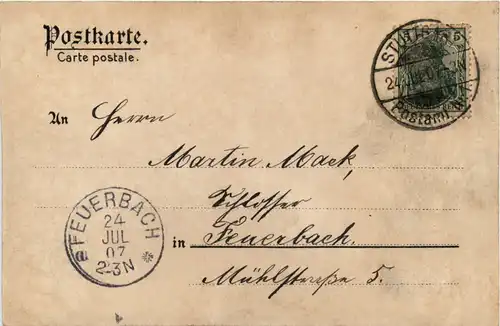 Postkarte.
Carte postale.
An Herrn
Martin Mack,
Schlosser
in Feuerbach.
Mühlstraße 5.
FEUERBACH
24
JUL
07
2-3N
Postamt